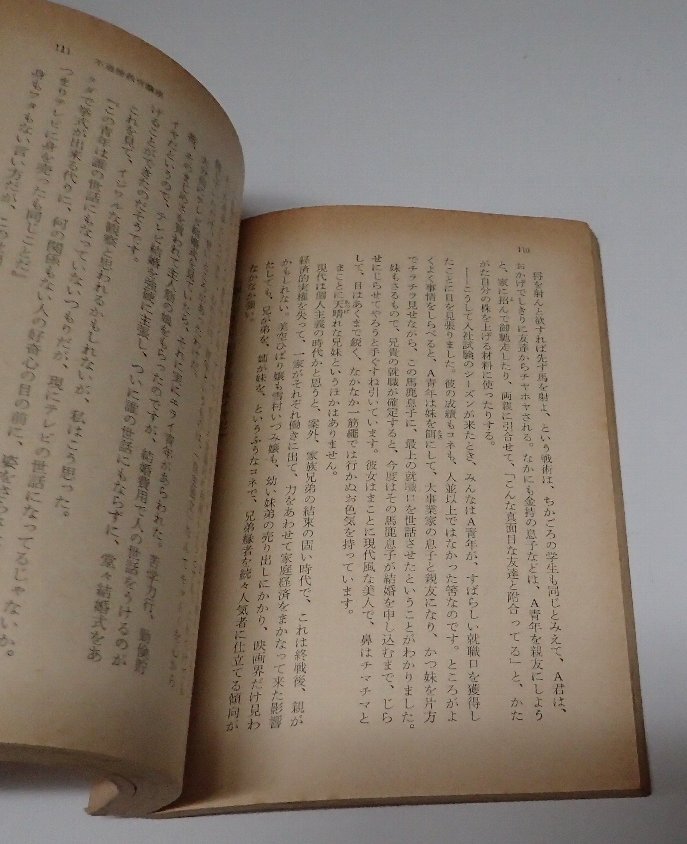 110
将を射んと欲すれば先ず馬を射よ、という戦術は、ちかごろの学生も同じとみえて、A君は、
おかげでしきりに友達からチヤホヤされる。なかにも金持の息子などは、A青年を親友にしよう
と、家に招んで御馳走したり、両親に引合せて、「こんな真面目な友達と附合ってる」と、かた
がた自分の株を上げる材料に使ったりする。
――こうして入社試験のシーズンが来たとき、みんなはA青年が、すばらしい就職口を獲得し
たことに目を見張りました。彼の成績もコネも、人並以上ではなかった筈なのです。ところがよ
くよく事情をしらべると、A青年は妹を餌にして、大事業家の息子と親友になり、かつ妹を片方
でチラチラ見せながら、この馬鹿息子に、最上の就職口を世話させたということがわかりました。
妹もさるもので、兄貴の就職が確定すると、今度はその馬鹿息子が結婚を申し込むまで、じら
せにじらせてやろうと手ぐすね引いています。彼女はまことに現代風な美人で、鼻はチマチマと
して、目はあくまで鋭く、なかなか一筋縄では行かぬお色気を持っています。
まことに天晴れな兄妹というほかはありません。
現代は個人主義の時代かと思うと、案外、家族兄弟の結束の固い時代で、これは終戦後、親が
経済的実権を失って、一家がそれぞれ働きに出て、力をあわせて家庭経済をまかなって来た影響
かもしれない。美空ひばり嬢も雪村いづみ嬢も、幼い妹弟の売り出しにかかり、映画界だけ見わ
たしても、兄が弟を、姉が妹を、というふうなコネで、兄弟縁者を続々人気者に仕立てる傾向が
なかなか強い。
111
不道徳教育講座
イヤだというので、テレビ結婚を強硬に主張し、ついに誰の世話にもならずに、堂々結婚式をあ
げることができたのだそうです。
これを見て、イジワルな観察と思われるかもしれないが、私はこう思った。
「この青年は誰の世話にもなっていないつもりだが、現にテレビの世話になってるじゃないか。
タダで挙式が出来る代りに、何の関係もない人の好奇心の目の前に、姿をさら
つまりテレビに身を売ったも同じことだ」
身もフタもない言い方だが、